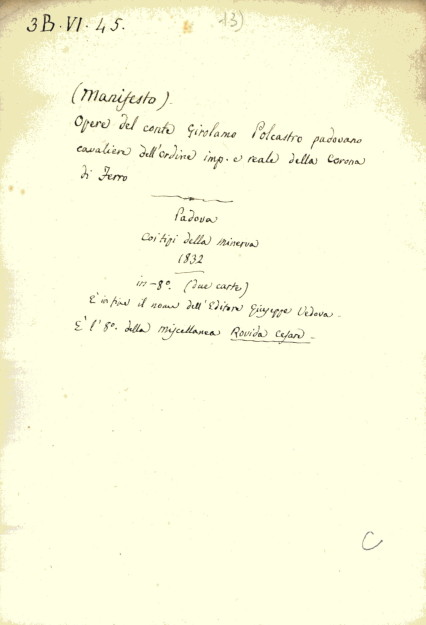 3B. VI. 45.
13)
(Manifesto).
Opere del conte Girolamo Polcastro padovano
cavaliere dell'ordine imp. e reale della Corona
di Ferro
Padova
Coi tipi della minerva
1832
in-8º. (due carte)
E' in fine il nome dell'Editore Giuseppe Vedova.
E' l'8º. della miscellanea Rovida Cesare.
C